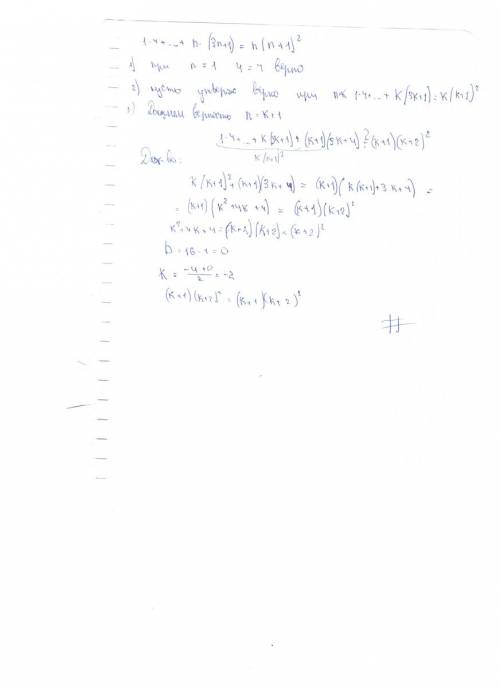 1·4+...+ n·(3n+1) = n(n+1)²
1) при n=1 4=4 верно
2) пусть утверж верно при n=k 1·4+...+k(3k+1)=k(k+1)²
3) верность n=k+1
1·4+...+k(3k+1)+(k+1)(3k+4)≟(k+1)(k+2)²
k(k+1)²
Док-во:
k(k+1)²+(k+1)(3k+4) = (k+1)(k(k+1)+3k+4) =
= (k+1)(k²+4k+4) = (k+1)(k+2)²
k²+4k+4=(k+2)(k+2)=(k+2)²
D=16-1=0
k = -4+0/2 = -2
(k+1)(k+2)² = (k+1)(k+2)²
#